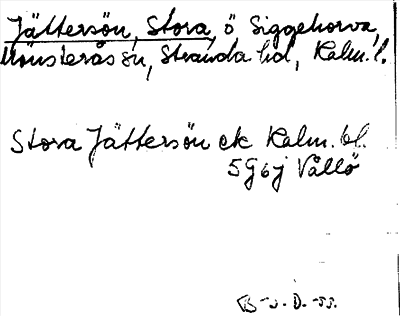 Jättersön, Stora, ö Siggehorva,
Mönsterås sn, Stranda hd, Kalm. l.
Stora Jättersön ek Kalm. bl.
5G6j Vållö